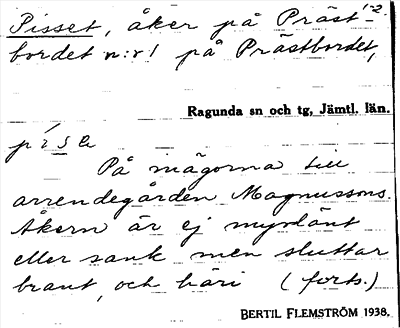 Pisset, åker på Präst- 1-2
bordet n:r 1 på Prästbordet,
Ragunda sn och tg, Jämtl. län.
På mägorna till
arrendegården Magnussons.
Åkern är ej myrlänt
eller sank men sluttar
brant, och häri (forts.)
BERTIL FLEMSTRÖM 1938.